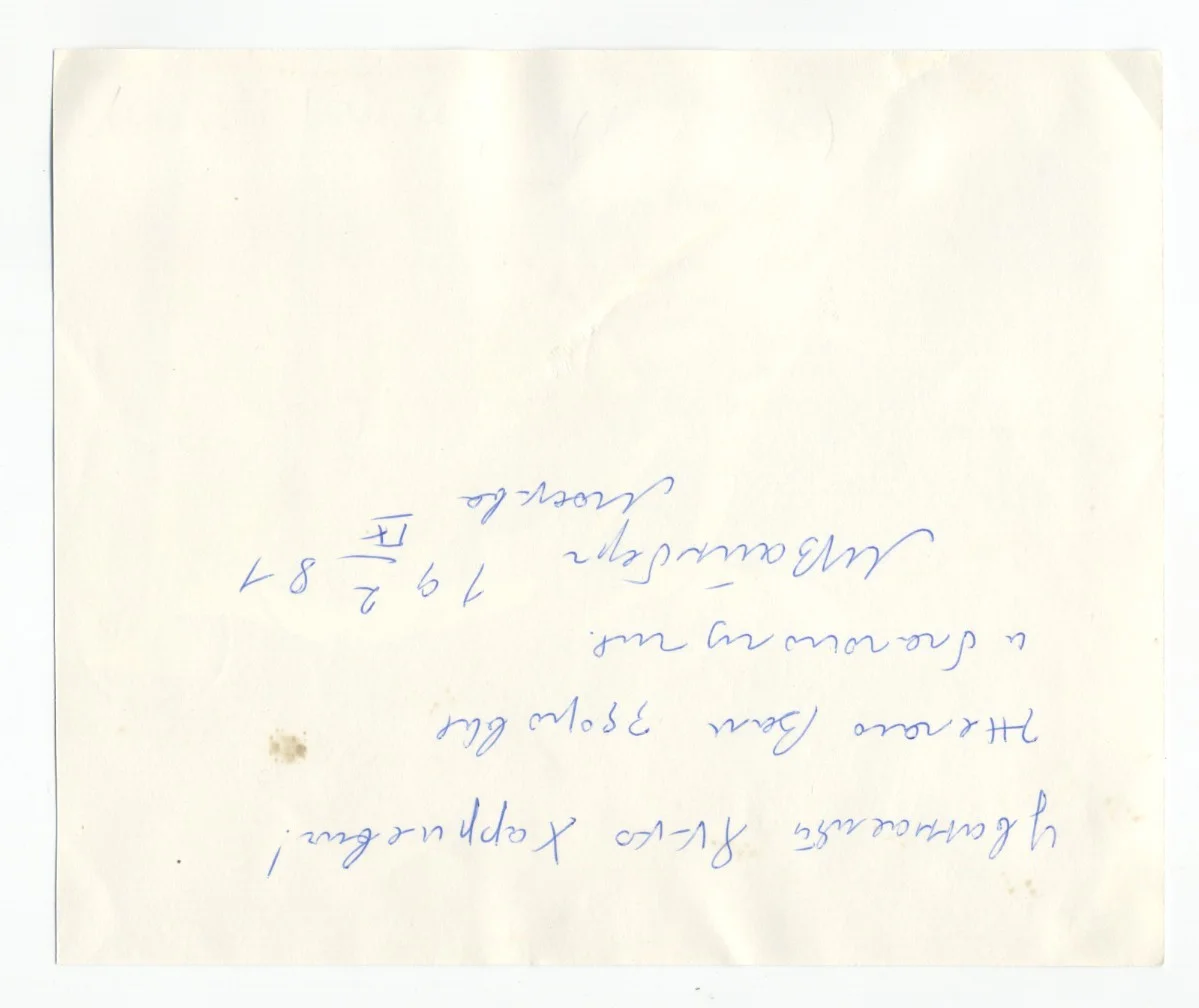 Уважаемый Харрневич!
Желаю Вам здоровья
и благополучия.
МВайнберг 19 2/IX 81
Москва